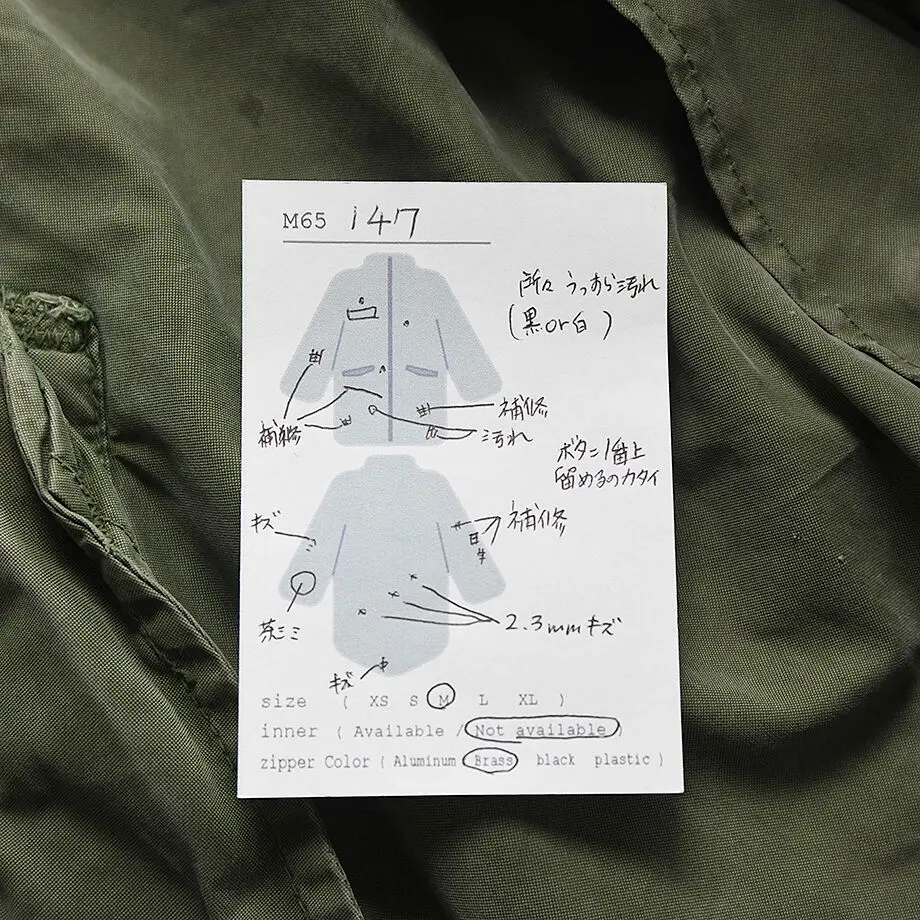 M65 147
所々 うっすら汚れ
(黒or白 )
補修
補修
汚れ
ボタン1番上
留めるのカタイ
キズ
補修
茶シミ
2.3mmキズ
キズ
size ( XS S M L XL )
inner ( Available / Not available )
zipper Color ( Aluminum Brass black plastic )